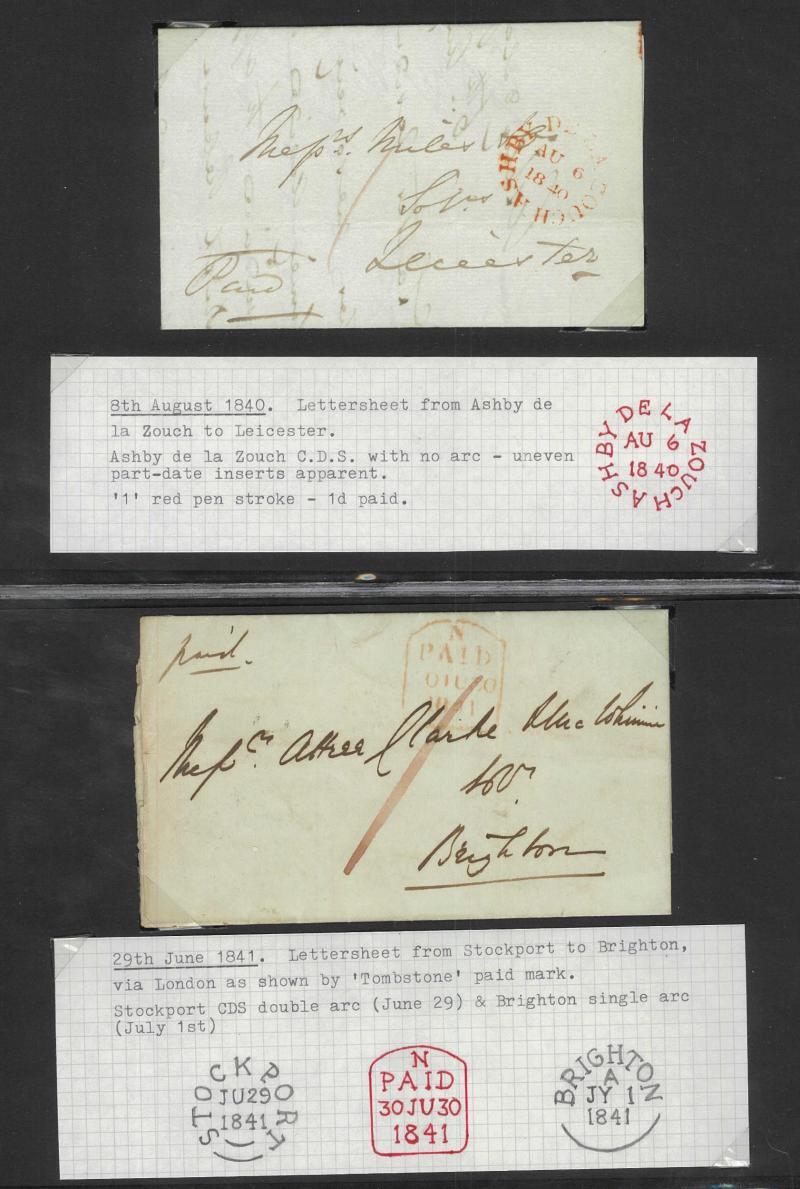 Messrs. Miles &Co.
Solrs
Leicester
Paid
ASHBY DE LA ZOUCH
AU 6
1840
8th August 1840. Lettersheet from Ashby de
la Zouch to Leicester.
Ashby de la Zouch C.D.S. with no arc - uneven
part-date inserts apparent.
'1' red pen stroke - 1d paid.
ASHBY DE LA ZOUCH
AU 6
1840
paid.
N
PAID
1841
Messrs. Attree Clarke
Solrs
Brighton
29th June 1841. Lettersheet from Stockport to Brighton,
via London as shown by 'Tombstone' paid mark.
Stockport CDS double arc (June 29) & Brighton single arc
(July 1st)
STOCKPORT
JU29
1841
N
PAID
30JU30
1841
BRIGHTON
A
JY 1
1841